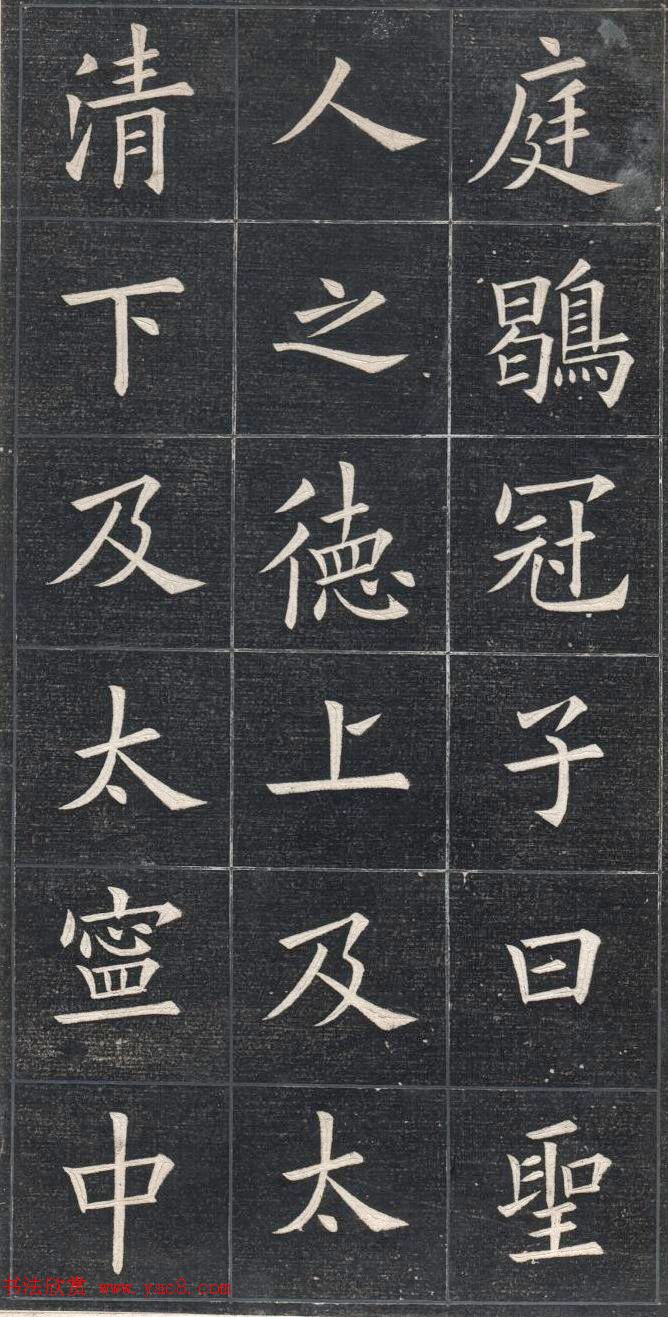 庭鶡冠子曰聖
人之徳上及太
清下及太寧中
书法欣赏 www.yac8.com